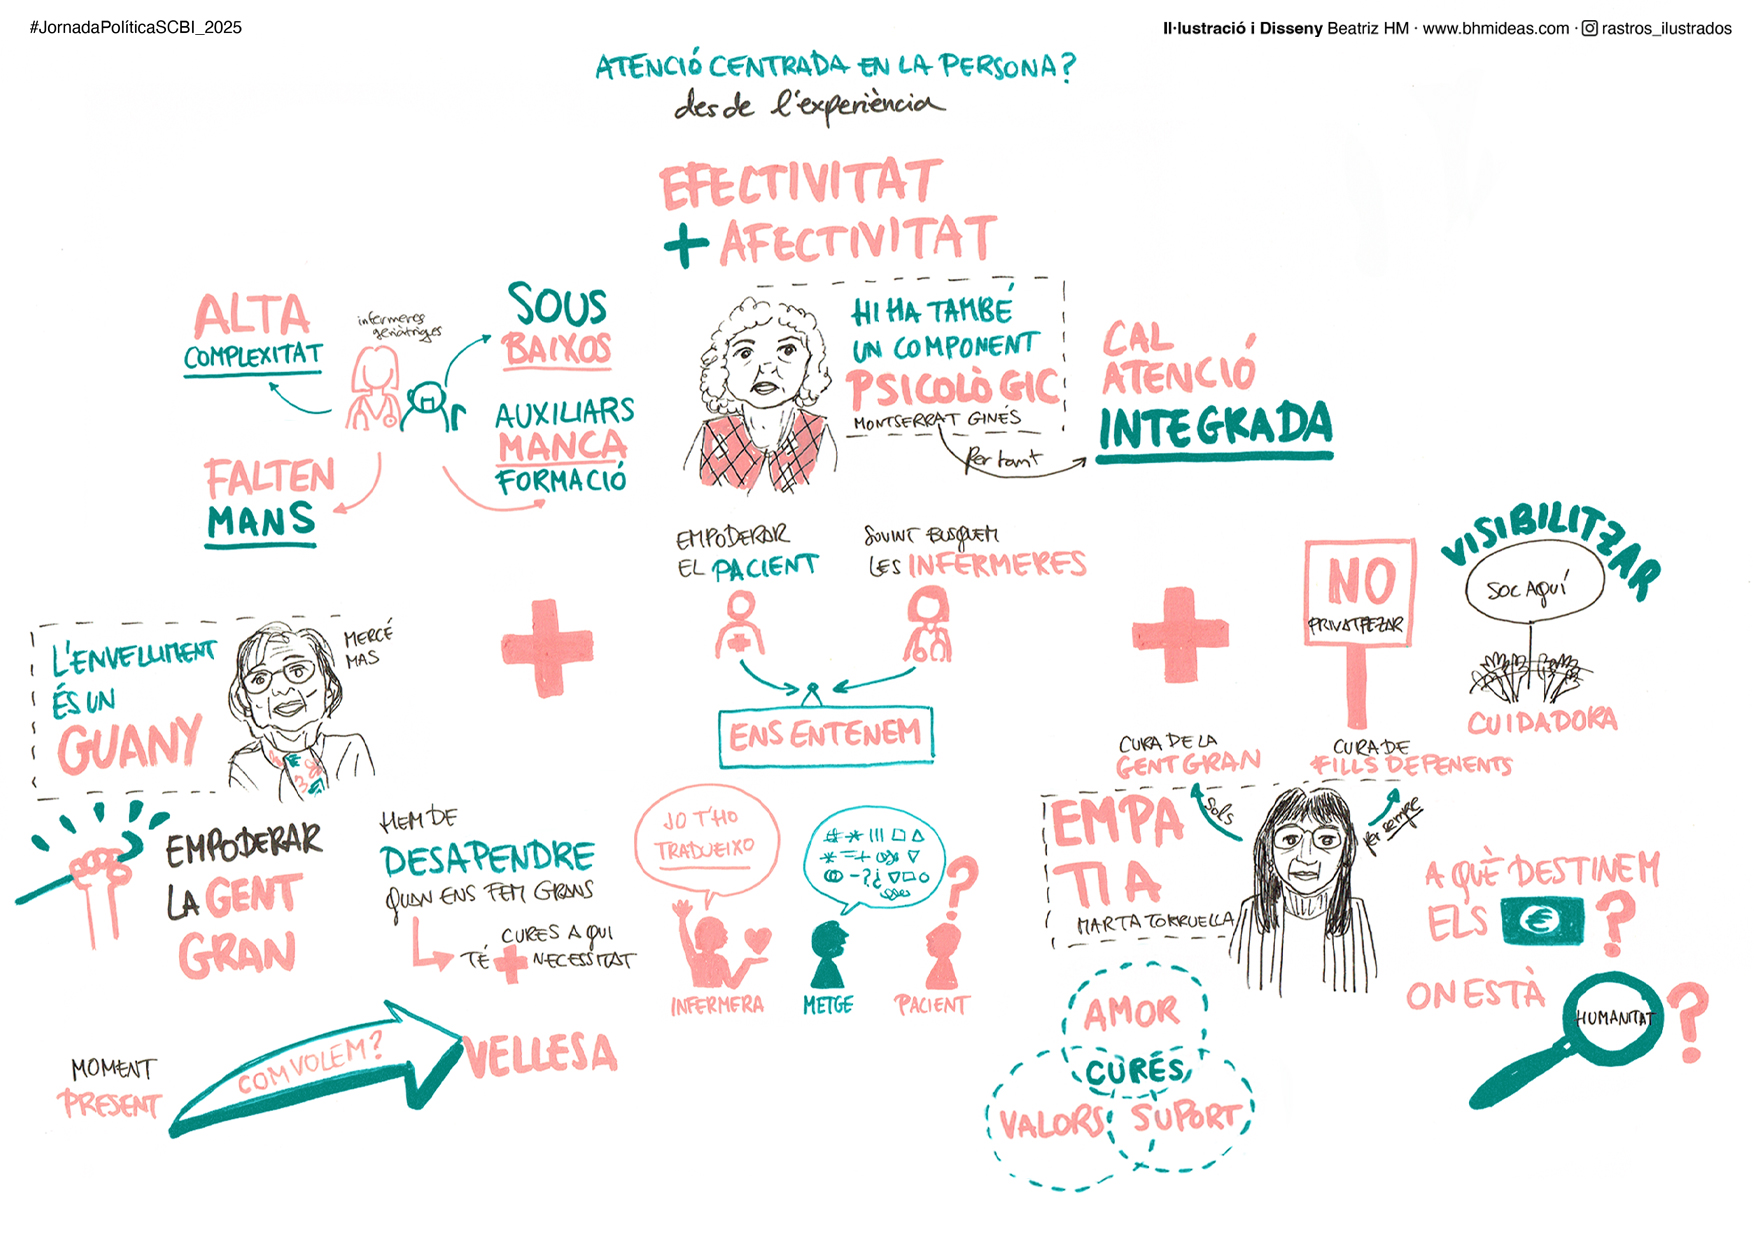 #JornadaPolíticaSCBI_2025
Il·lustració i Disseny Beatriz HM · www.bhmideas.com · rastros_ilustrados
ATENCIÓ CENTRADA EN LA PERSONA?
des de l'experiència
EFECTIVITAT
+ AFECTIVITAT
ALTA
COMPLEXITAT
infermeres
geriàtriques
SOUS
BAIXOS
AUXILIARS
MANCA
FORMACIÓ
FALTEN
MANS
HI HA TAMBÉ
UN COMPONENT
PSICOLÒGIC
MONTSERRAT GINÉS
Per tant
CAL
ATENCIÓ
INTEGRADA
L'ENVELLIMENT
ÉS UN
GUANY
MERCÉ
MAS
EMPODERAR
LA GENT
GRAN
HEM DE
DESAPENDRE
QUAN ENS FEM GRANS
CURES A QUI
TÉ + NECESSITAT
MOMENT
PRESENT
COM VOLEM?
VELLESA
EMPODERAR
EL PACIENT
SOVINT BUSQUEM
LES INFERMERES
ENS ENTENEM
JO T'HO
TRADUEIXO
INFERMERA
METGE
?
PACIENT
NO
PRIVATITZAR
VISIBILITZAR
SOC AQUÍ
CUIDADORA
CURA DE LA
GENT GRAN
CURA DE
FILLS DEPENENTS
Sols
per sempre
EMPA
TIA
MARTA TORRUELLA
A QUÈ DESTINEM
ELS € ?
ON ESTÀ
HUMANITAT
?
AMOR
CURES
VALORS
SUPORT